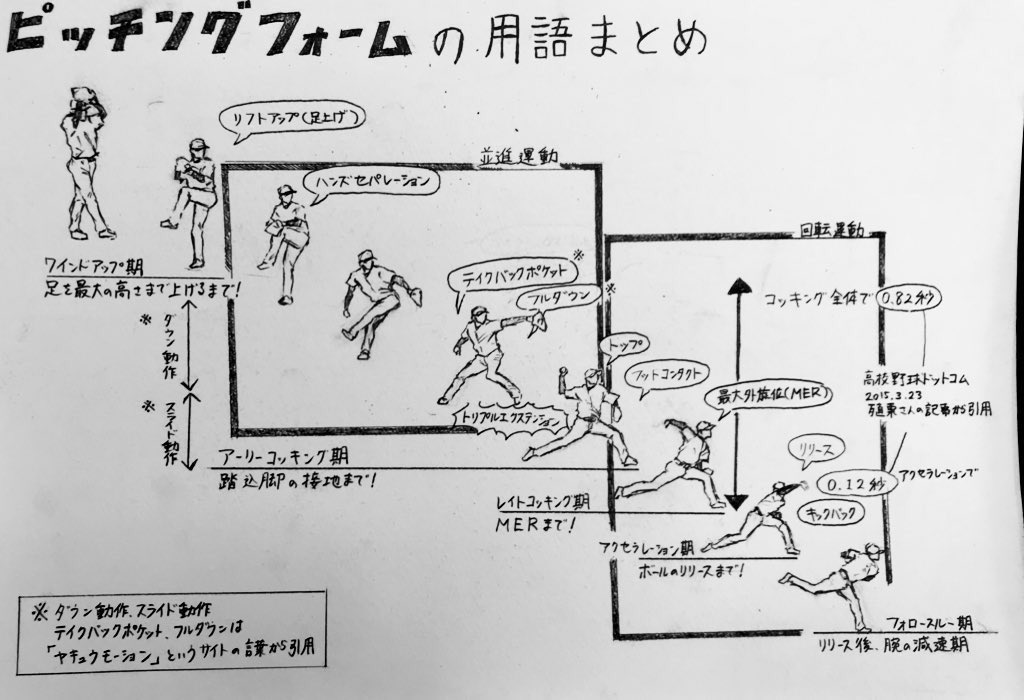 ピッチングフォームの用語まとめ
リフトアップ(足上げ)
並進運動
ハンズセパレーション
ワインドアップ期
足を最大の高さまで上げるまで!
※ダウン動作
※スライド動作
テイクバックポケット※
フルダウン※
トリプルエクステンション
アーリーコッキング期
踏込脚の接地まで!
回転運動
コッキング全体で0.82秒
トップ
フットコンタクト
最大外旋位(MER)
高校野球ドットコム
2015.3.23
殖栗さんの記事から引用
レイトコッキング期
MERまで!
リリース
0.12秒
アクセラレーションで
キックバック
アクセラレーション期
ボールのリリースまで!
フォロースルー期
リリース後、腕の減速期
※ダウン動作、スライド動作
テイクバックポケット、フルダウンは
「ヤキュウモーション」というサイトの言葉から引用